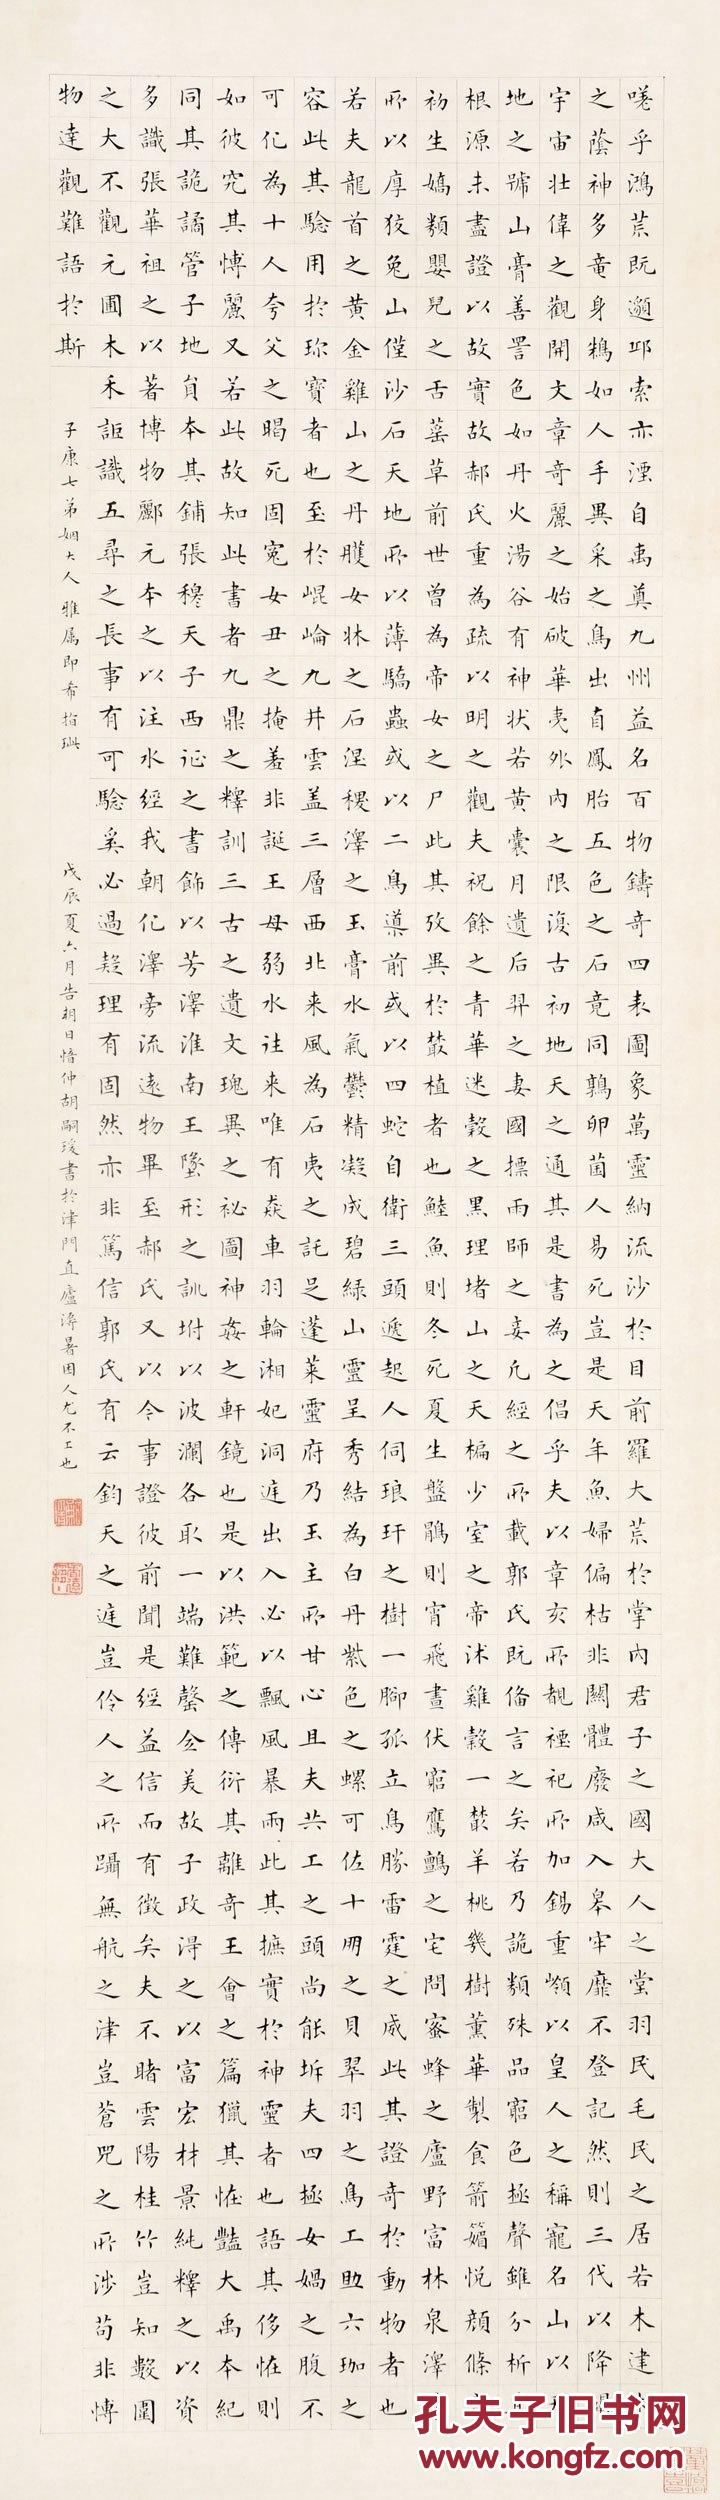 嗟乎鴻荒既邈邱索亦湮自禹奠九州益名百物鑄奇四表圖象萬靈納流沙於目前羅大荒於掌內君子之國大人之堂羽民毛民之居若木建
之蔭神多竜身鶉如人手異采之鳥出自鳳胎五色之石竟同鷄卵菌人易死豈是天年魚婦偏枯非關體廢咸入皋牢靡不登記然則三代以降
宇宙壯偉之觀開文章奇麗之始破華夷外內之限復古初地天之通其是書為之倡乎夫以章亥所覩禋祀所加錫重嶺以皇人之稱寵名山以
地之號山膏善詈色如丹火湯谷有神狀若黃囊月遺后羿之妻國摽雨師之妾凡經之所載郭氏既俻言之矣若乃詭類殊品窮色極聲錐分析
根源未盡證以故實故郝氏重為疏以明之觀夫祝餘之青華迷穀之黑理堵山之天楄少室之帝沭雞穀一藂羊桃幾樹薰華製食箭䉋悅顏條
初生嬌類嬰兒之舌䔄草前世曾為帝女之尸此其攷異於藂植者也鯥魚則冬死夏生盤鵑則宵飛晝伏窮鷹鷂之宅問蜜蜂之廬野富林泉澤
所以摩狡兔山僅沙石天地所以薄驕蟲或以二鳥導前或以四蛇自衛三頭遞起人伺琅玕之樹一腳孤立鳥勝雷霆之威此其證奇於動物者也
若夫龍首之黃金雞山之丹雘女牀之石涅稷澤之玉膏水氣鬱精凝成碧綠山靈呈秀結為白丹紫色之螺可佐十朋之貝翠羽之鳥工助六珈之
容此其騐用於珎寶者也至於崐崘九井雲盖三層西北来風為石夷之託足蓬萊靈府乃玉主所甘心且夫共工之頭尚能坼夫四極女媧之腹不
可化為十人夸父之暍死固寃女丑之掩羞非誕王母弱水往来唯有猋車羽輪湘妃洞庭出入必以飄風暴雨此其摭實於神靈者也語其侈恠則
如彼究其博麗又若此故知此書者九鼎之釋訓三古之遺文瑰異之祕圖神姦之軒鏡也是以洪範之傳衍其離奇王會之篇獵其恠豔大禹本紀
同其詭譎管子地員本其鋪張穆天子西征之書飾以芳澤淮南王墬形之訓坿以波瀾各取一端難罄全美故子政淂之以富宏材景純釋之以資
多識張華祖之以著博物酈元本之以注水經我朝化澤旁流遠物畢至郝氏又以今事證彼前聞是經益信而有徵矣夫不睹雲陽桂竹豈知數圍
之大不觀元圃木禾詎識五尋之長事有可騐奚必過疑理有固然亦非篤信郭氏有云鈞天之庭豈伶人之所躡無航之津豈蒼兕之所涉苟非博
物達觀難語於斯
子康七弟姻大人雅屬即希指玼
戊辰夏六月告朔日愔仲胡嗣瑗書於津門直廬溽暑困人尤不工也
孔夫子旧书网
www.kongfz.com